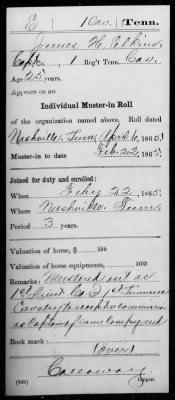 E 1 Cav. Tenn.
James H. Elkins
Capt, Co. , 1 Reg't Tenn. Cav.
Age 25 years.
Appears on an
Individual Muster-in Roll
of the organization named above. Roll dated
Nashville, Tenn, April 6, 1865.
Muster-in to date Feb. 22, 1865.
Joined for duty and enrolled:
When Feby 22, 1865.
Where Nashville Tenn
Period 3 years.
Valuation of horse, $ 100
Valuation of horse equipments, $ 100
Remarks: Mustered out as
1st Lieut Co. 1st Tennessee
Cavalry to accept commission
as Captain of same Company
Book mark:
(over)
Calloway
(336) Copyist.